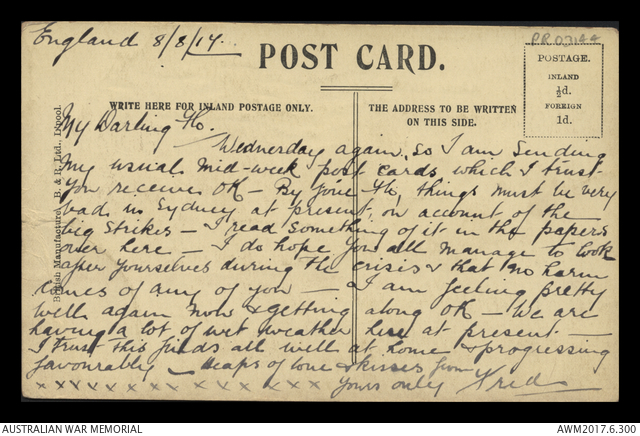 England 8/8/17.
PR 03144
POST CARD.
POSTAGE.
INLAND
½d.
FOREIGN
1d.
WRITE HERE FOR INLAND POSTAGE ONLY.
THE ADDRESS TO BE WRITTEN
ON THIS SIDE.
British Manufacture. B. & R. Ltd., L'pool.
My Darling Flo.
Wednesday again, so I am sending
my usual mid-week post cards which I trust
you receive OK — By jove Flo, things must be very
bad in Sydney at present, on account of the
big strikes — I read something of it in the papers
over here — I do hope you all manage to look
after yourselves during the crisis & that no harm
comes of any of you — I am feeling pretty
well again now & getting along OK — We are
having a lot of wet weather here at present —
I trust this finds all well at home & progressing
favourably — Heaps of love & kisses from
x x x x x x x x x x x x x yours only Fred
AUSTRALIAN WAR MEMORIAL
AWM2017.6.300